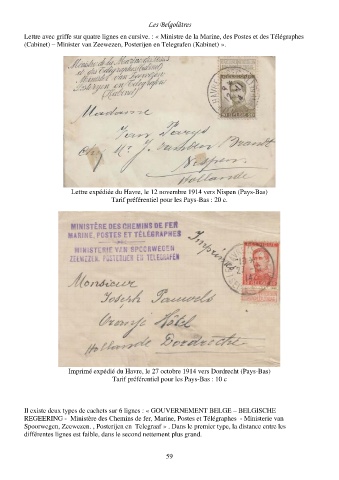 Les Belgolâtres
Lettre avec griffe sur quatre lignes en cursive. : « Ministre de la Marine, des Postes et des Télégraphes
(Cabinet) – Minister van Zeewezen, Posterijen en Telegrafen (Kabinet) ».
Ministre de la Marine des Postes
et des Télégraphes (Cabinet)
Minister van Zeewezen
Posterijen en Telegrafen
(Kabinet)
Madame
Jean Pauwys
chez Mr J. Vanden Brandt
Nispen
Hollande
Lettre expédiée du Havre, le 12 novembre 1914 vers Nispen (Pays-Bas)
Tarif préférentiel pour les Pays-Bas : 20 c.
MINISTÈRE DES CHEMINS DE FER
MARINE, POSTES ET TÉLÉGRAPHES
MINISTERIE VAN SPOORWEGEN
ZEEWEZEN, POSTERIJEN EN TELEGRAFEN
Imprimé
Monsieur
Joseph Pauwels
Oranje Hôtel
Hollande Dordrecht
Imprimé expédié du Havre, le 27 octobre 1914 vers Dordrecht (Pays-Bas)
Tarif préférentiel pour les Pays-Bas : 10 c
Il existe deux types de cachets sur 6 lignes : « GOUVERNEMENT BELGE – BELGISCHE
REGEERING - Ministère des Chemins de fer, Marine, Postes et Télégraphes - Ministerie van
Spoorwegen, Zeewezen, , Posterijen en Telegraaf » . Dans le premier type, la distance entre les
différentes lignes est faible, dans le second nettement plus grand.
59